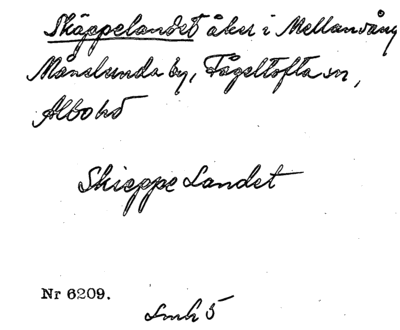 Skäppelandet åker i Mellanvång
Månslunda by, Fågeltofta sn,
Albo hd
Skieppe Landet
Nr 6209.
Lmh 5